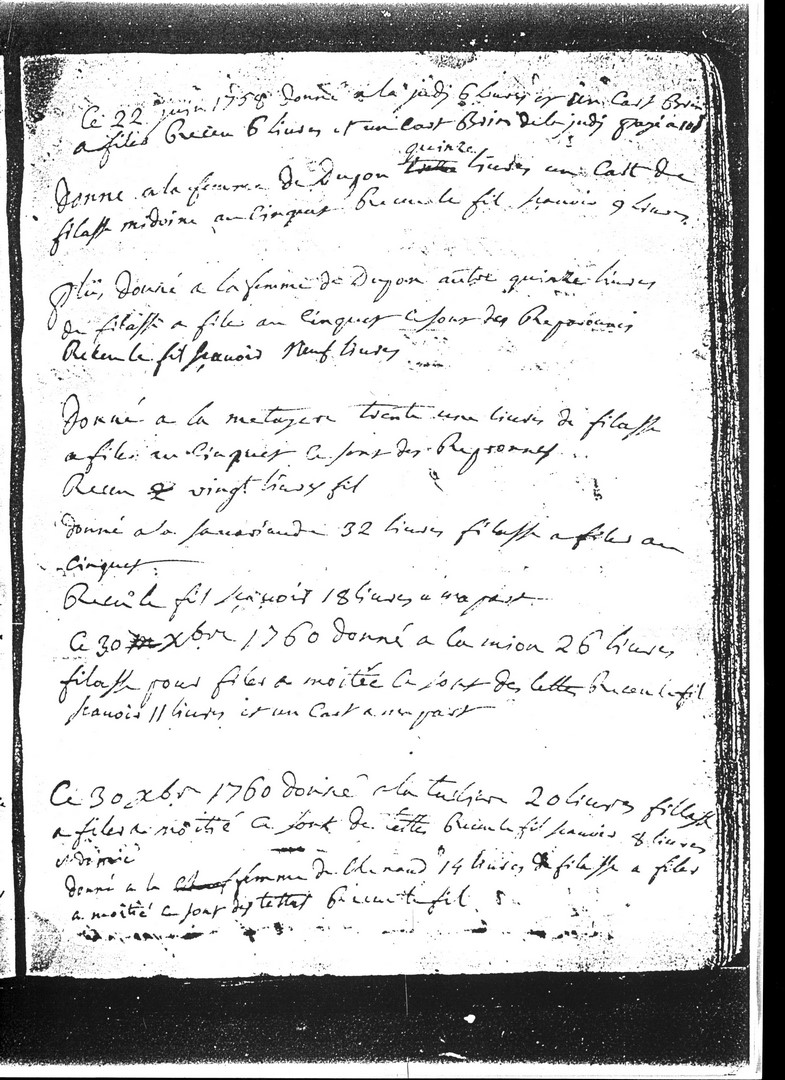 Ce 22 juin 1758 donné a la judi 6 livres et un cart Brin
a filer Receu 6 livres et un cart Brin de la judi
quinze
Donne a la femme de Dupon livres un cart de
filasse au cinquet Receu le fil scavoir 9 livres
Plus donné a la femme de Dupon autre quinze livres
de filasse a filer au cinquet ce sont des
Receu le fil scavoir Neuf livres
Donné a la metayere trente une livres de filasse
a filer au cinquet ce sont des
Receu vingt livres fil
donné a la 32 livres filasse a filer au
cinquet
Receu le fil scavoir 18 livres a ma part
Ce 30 xbre 1760 donné a la mion 26 livres
filasse pour filer a moitée ce sont des lette Receu le fil
scavoir 11 livres et un cart a ma part
Ce 30 xbr 1760 donné a la 20 livres fillasse
a filer a moitié ce sont de lettes Receu le fil scavoir 8 livres
et demie
donné a la femme de 14 livres de filasse a filer
a moitié ce sont des lettes Receu le fil